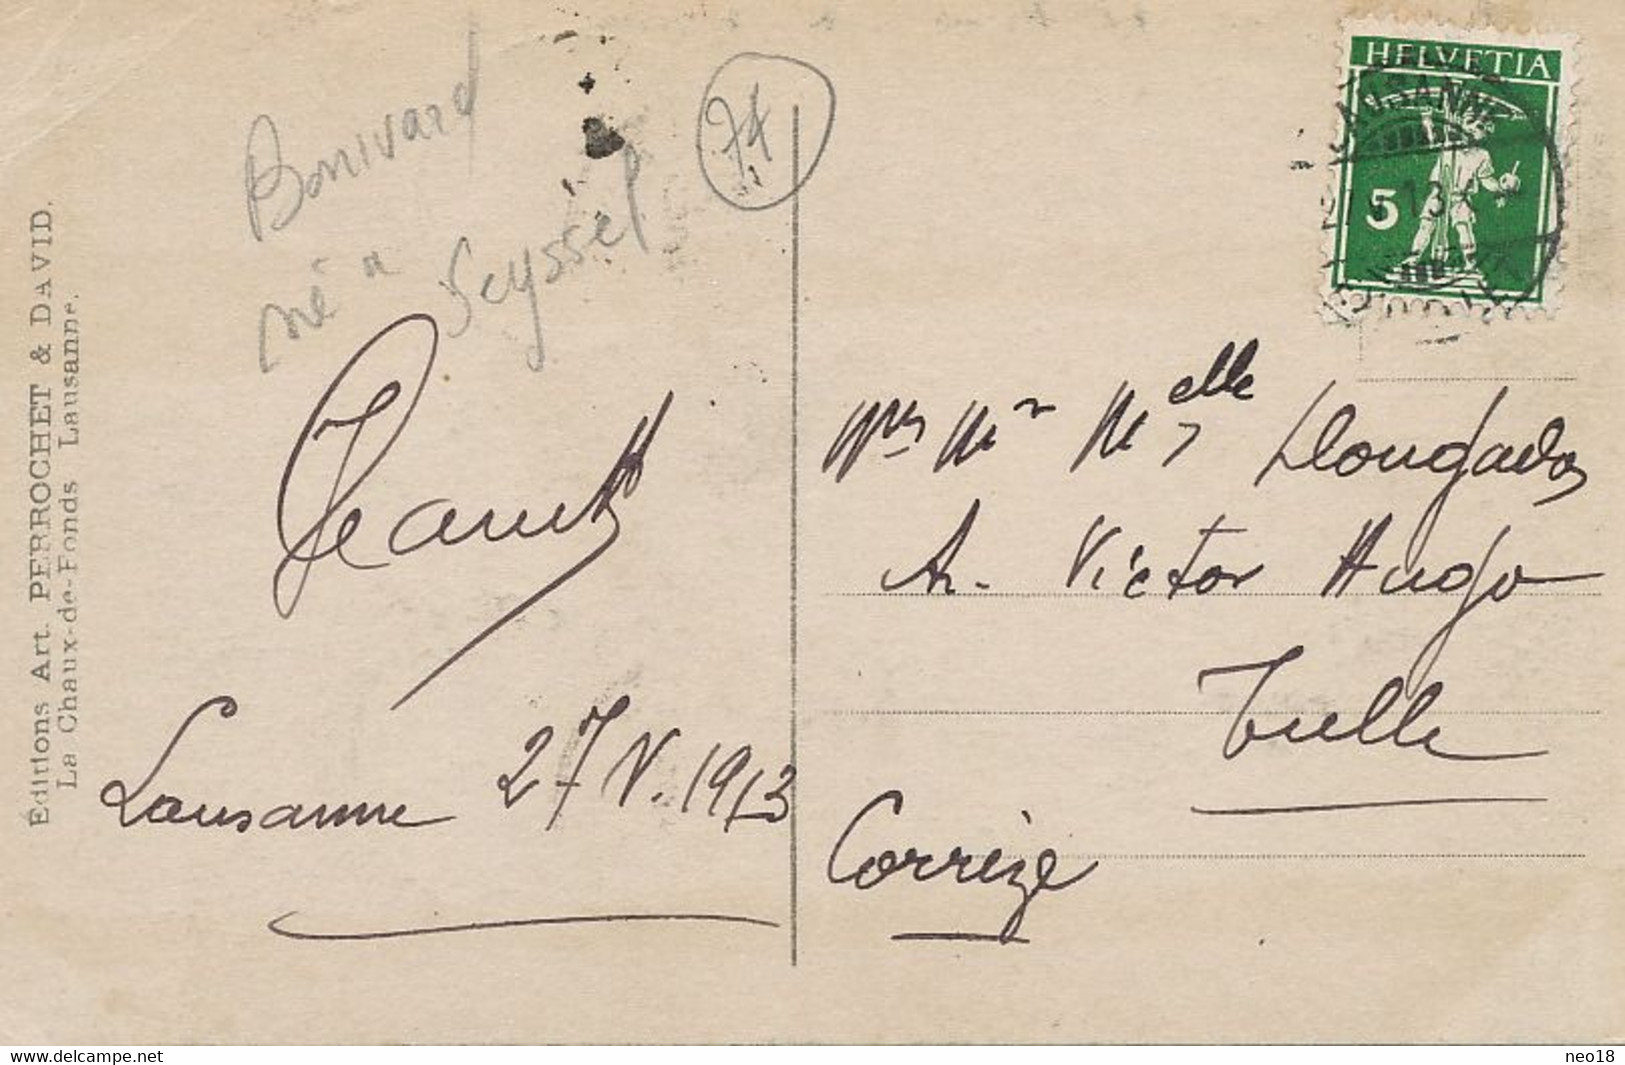 Bonivard
né a
Seyssel
74
HELVETIA
5
LAUSANNE
13
Lausanne 27 V. 1913
Mr Melle
Av. Victor Hugo
Tulle
Corrèze
Éditions Art. PERROCHET & DAVID.
La Chaux-de-Fonds Lausanne.
www.delcampe.net
neo18